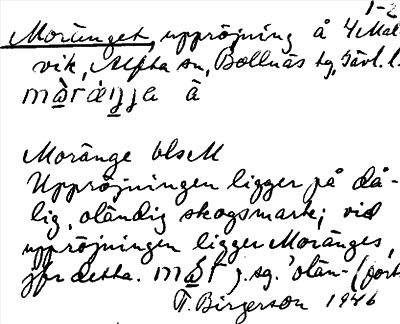 1-2
Moränget, uppröjning å 4 Mal-
vik, Alfta sn, Bollnäs tg, Gävl. l.
Moränge blsM
Uppröjningen ligger på då-
lig, oländig skogsmark; vid
uppröjningen ligger Moränges,
jfr detta. j. sg. 'olän- (fort
T. Birgerson 1946